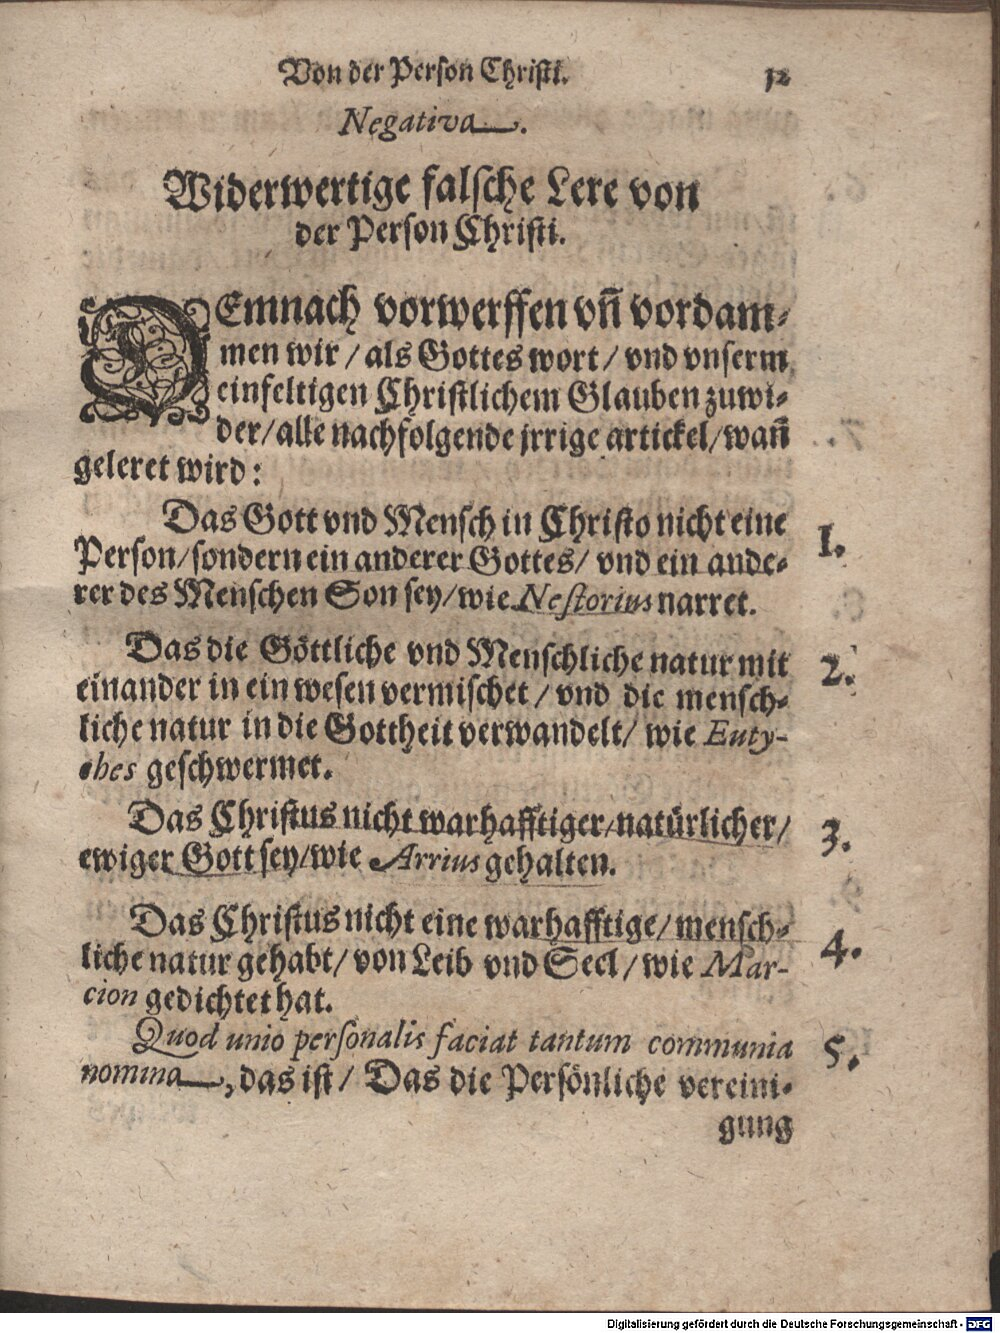 Von der Person Christi. 12
Negativa.
Widerwertige falsche Lere von
der Person Christi.
DEmnach vorwerffen vn̄ vordam-
men wir / als Gottes wort / vnd vnserm
einfeltigen Christlichem Glauben zuwi-
der / alle nachfolgende jrrige artickel / wañ
geleret wird:
Das Gott vnd Mensch in Christo nicht eine 1.
Person / sondern ein anderer Gottes / vnd ein ande-
rer des Menschen Son sey / wie Nestorius narret.
Das die Göttliche vnd Menschliche natur mit 2.
einander in ein wesen vermischet / vnd die mensch-
liche natur in die Gottheit verwandelt / wie Euty-
ches geschwermet.
Das Christus nicht warhafftiger / natürlicher / 3.
ewiger Gott sey / wie Arrius gehalten.
Das Christus nicht eine warhafftige / mensch- 4.
liche natur gehabt / von Leib vnd Seel / wie Mar-
cion gedichtet hat.
Quod unio personalis faciat tantum communia 5.
nomina, das ist / Das die Persönliche vereini-
gung
Digitalisierung gefördert durch die Deutsche Forschungsgemeinschaft - DFG